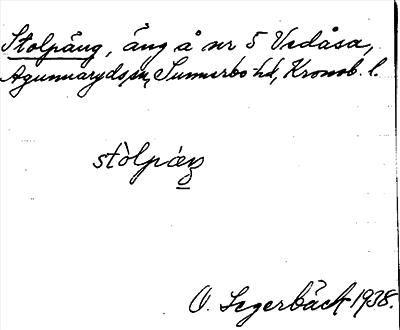 Stolpäng, äng å nr 5 Vedåsa,
Agunnaryds sn, Sunnerbo hd, Kronob. l.
stòlpæŋ
O. Segerbäck 1938.